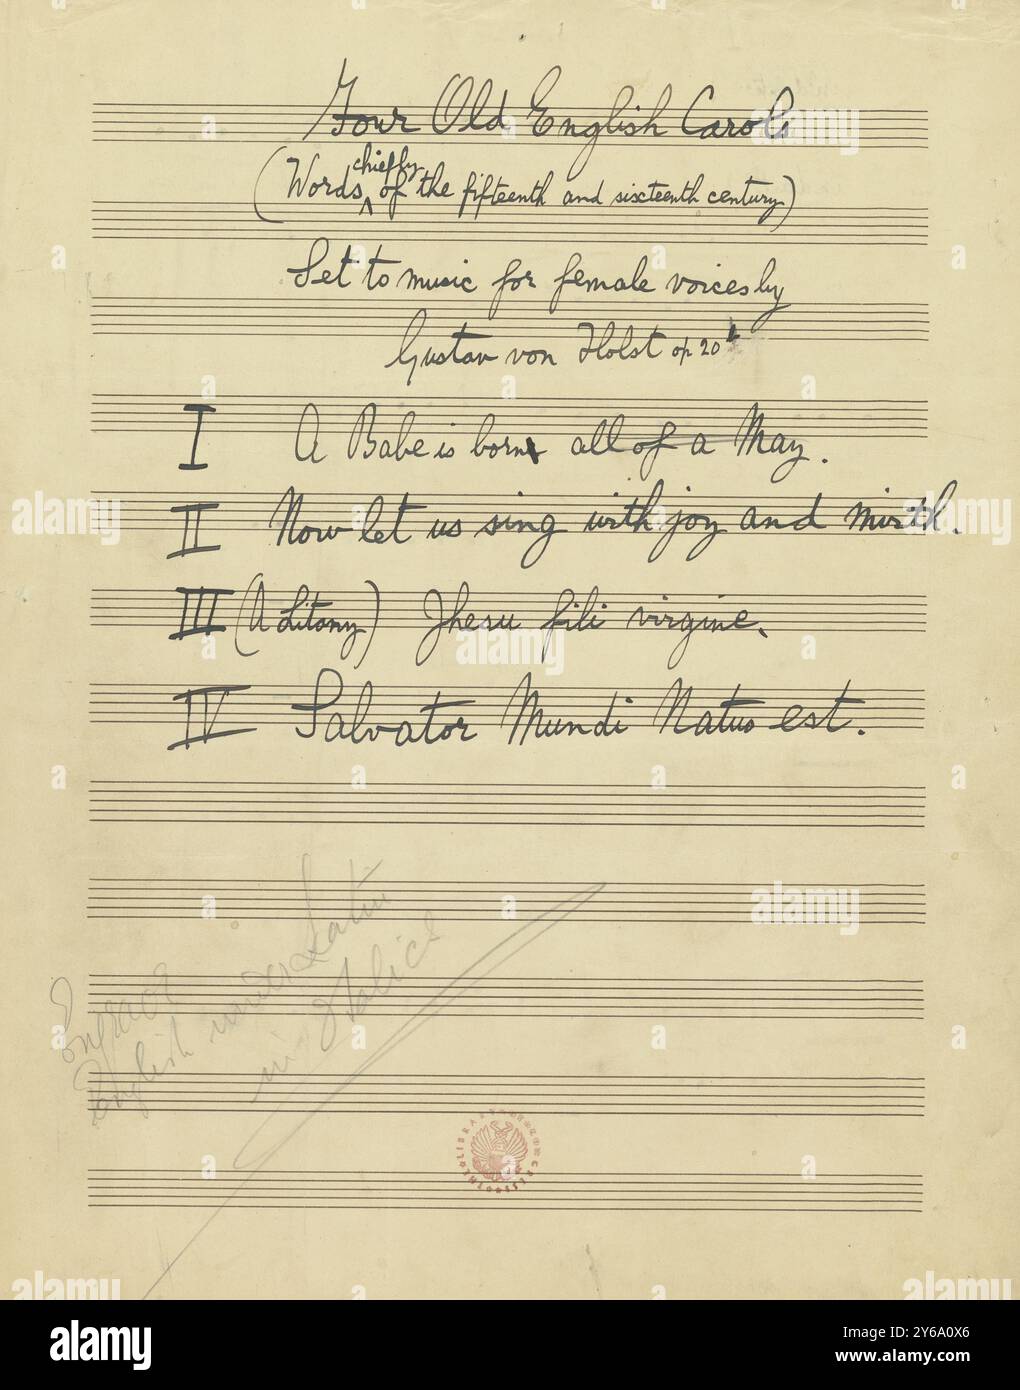 Four Old English Carols
(Words chiefly of the fifteenth and sixteenth century)
Set to music for female voices by
Gustav von Holst op 20 b
I A Babe is born all of a May.
II Now let us sing with joy and mirth.
III (A Litany) Jhesu fili virgine.
IV Salvator Mundi Natus est.
Engrave
English under Latin
in Italics
THE LIBRARY OF CONGRESS
alamy
Image ID: 2Y6A0X6
www.alamy.com